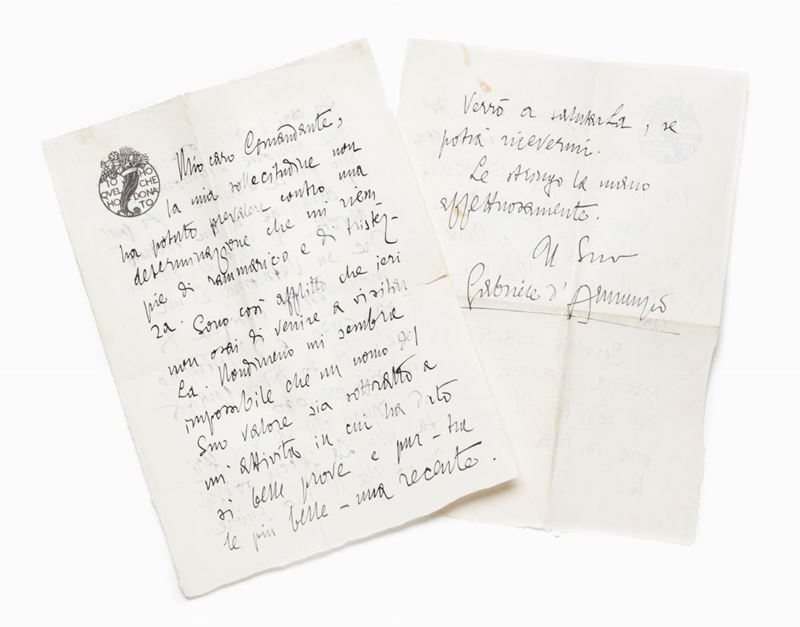 IO HO
QVEL CHE
HO DONATO
Mio caro Comandante,
la mia sollecitudine non
ha potuto prevalere contro una
determinazione che mi riem-
pie di rammarico e di tristez-
za. Sono così afflitto che jeri
non osai di venire a visitar-
La. Nondimeno mi sembra
impossibile che un uomo del
Suo valore sia sottratto a
un' attività in cui ha dato
sì belle prove e pur - tra
le più belle - una recente.
Verrò a salutarLa, se
potrà ricevermi.
Le stringo la mano
affettuosamente.
Il Suo
Gabriele d'Annunzio